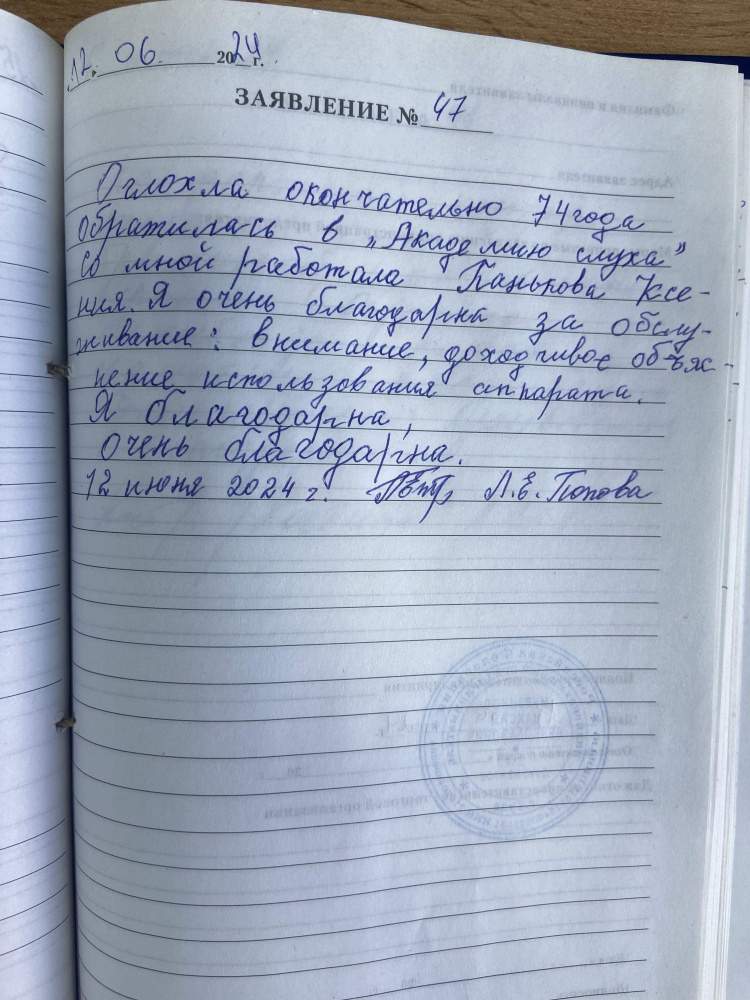 12. 06. 2024 г.
ЗАЯВЛЕНИЕ № 47
Оглохла окончательно 74 года
обратилась в „Академию слуха”
со мной работала Панькова Ксе-
ния. Я очень благодарна за обслу-
живание: внимание, доходчивое объяс-
нение использования аппарата.
Я благодарна,
очень благодарна.
12 июня 2024 г. Л.Е. Попова